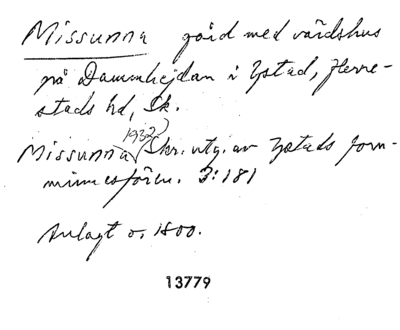 Missunna gård med värdshus
på Dammhejdan i Ystad, Herre-
stads hd, Sk.
1932
Missunna Skr. utg. av Ystads forn-
minnesfören. 3:181
Anlagt o. 1800.
13779